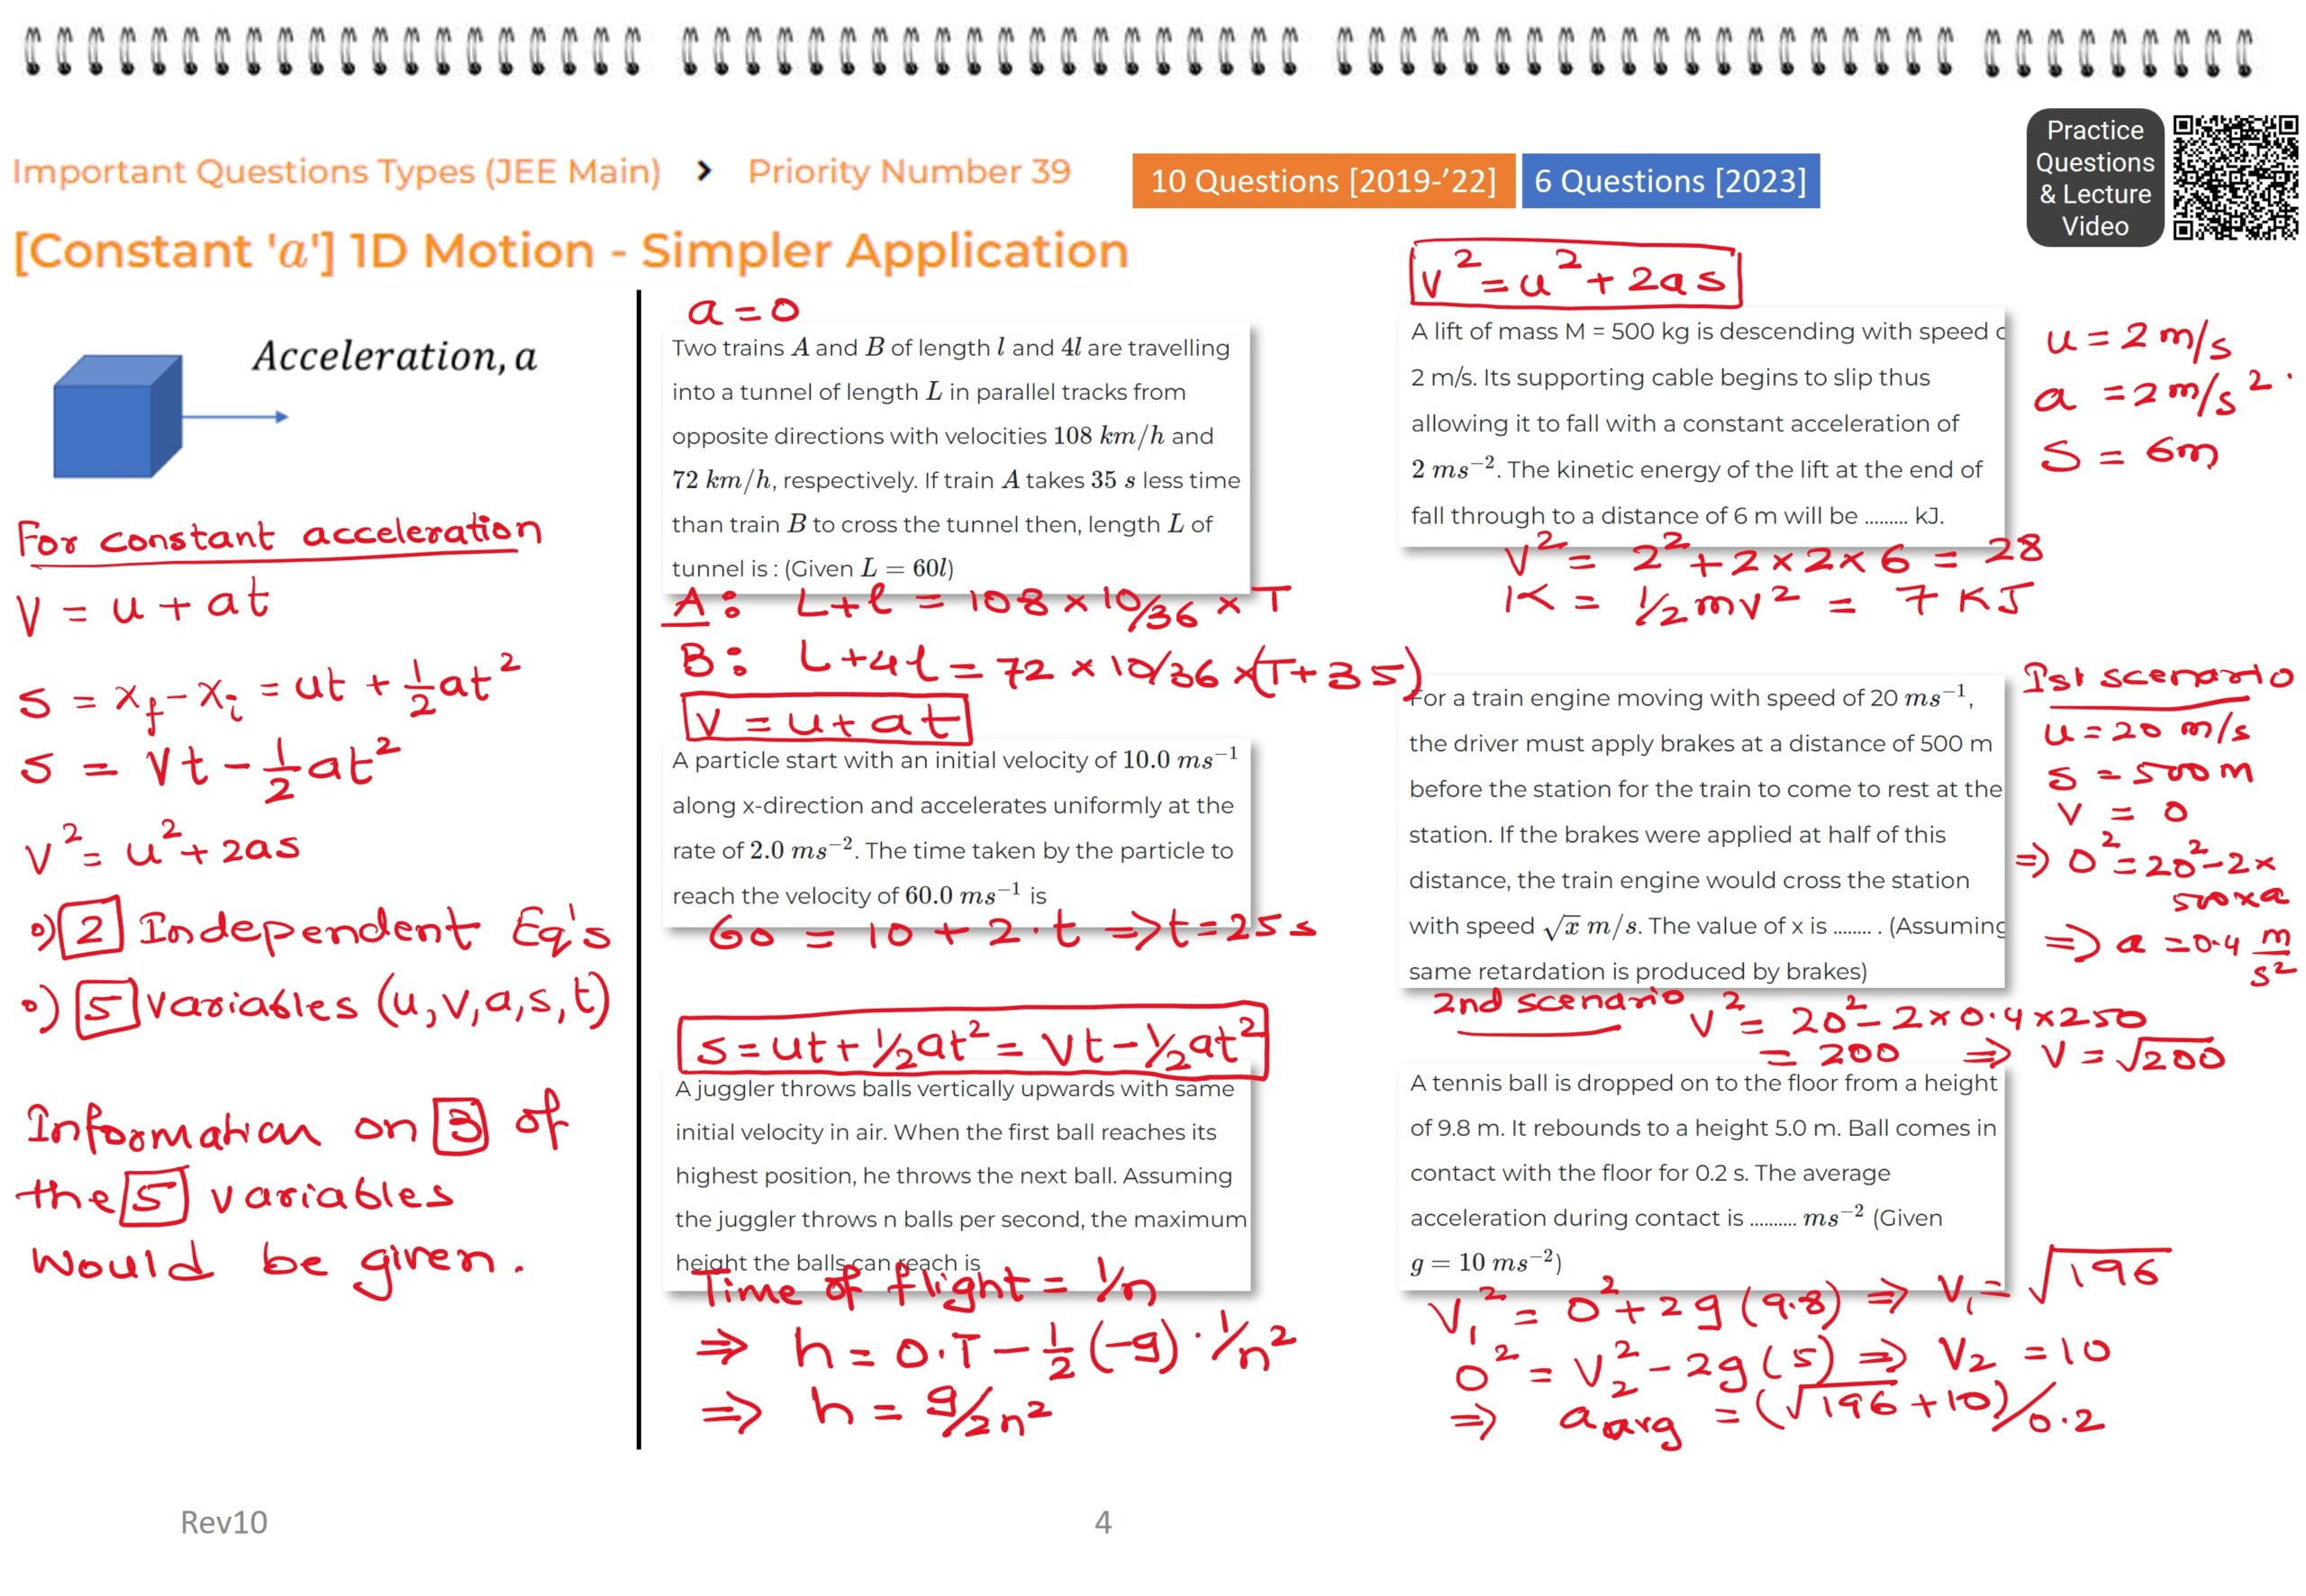 Important Questions Types (JEE Main) > Priority Number 39
10 Questions [2019-'22] 6 Questions [2023]
Practice
Questions
& Lecture
Video
[Constant 'a'] 1D Motion - Simpler Application
Acceleration, a
For constant acceleration
V = u + at
s = x_f - x_i = ut + 1/2 at²
s = Vt - 1/2 at²
V² = u² + 2as
°) 2 Independent Eq's
°) 5 variables (u, v, a, s, t)
Information on 3 of
the 5 variables
would be given.
a = 0
Two trains A and B of length l and 4l are travelling
into a tunnel of length L in parallel tracks from
opposite directions with velocities 108 km/h and
72 km/h, respectively. If train A takes 35 s less time
than train B to cross the tunnel then, length L of
tunnel is : (Given L = 60l)
A: L+l = 108 × 10/36 × T
B: L+4l = 72 × 10/36 × (T+35)
V = u + at
A particle start with an initial velocity of 10.0 ms⁻¹
along x-direction and accelerates uniformly at the
rate of 2.0 ms⁻². The time taken by the particle to
reach the velocity of 60.0 ms⁻¹ is
60 = 10 + 2·t ⇒ t = 25 s
s = ut + 1/2 at² = Vt - 1/2 at²
A juggler throws balls vertically upwards with same
initial velocity in air. When the first ball reaches its
highest position, he throws the next ball. Assuming
the juggler throws n balls per second, the maximum
height the balls can reach is
Time of flight = 1/n
⇒ h = 0·T - 1/2 (-g) · 1/n²
⇒ h = g/2n²
V² = u² + 2as
A lift of mass M = 500 kg is descending with speed
2 m/s. Its supporting cable begins to slip thus
allowing it to fall with a constant acceleration of
2 ms⁻². The kinetic energy of the lift at the end of
fall through to a distance of 6 m will be ......... kJ.
u = 2 m/s
a = 2 m/s².
S = 6m
V² = 2² + 2×2×6 = 28
K = 1/2 mv² = 7 KJ
For a train engine moving with speed of 20 ms⁻¹,
the driver must apply brakes at a distance of 500 m
before the station for the train to come to rest at the
station. If the brakes were applied at half of this
distance, the train engine would cross the station
with speed √x m/s. The value of x is ........ . (Assuming
same retardation is produced by brakes)
1st scenario
u = 20 m/s
s = 500 m
v = 0
⇒ 0² = 20² - 2×
500×a
⇒ a = 0.4 m/s²
2nd scenario V² = 20² - 2×0.4×250
= 200 ⇒ V = √200
A tennis ball is dropped on to the floor from a height
of 9.8 m. It rebounds to a height 5.0 m. Ball comes in
contact with the floor for 0.2 s. The average
acceleration during contact is .......... ms⁻² (Given
g = 10 ms⁻²)
V₁² = 0² + 2g(9.8) ⇒ V₁ = √196
0² = V₂² - 2g(5) ⇒ V₂ = 10
⇒ a_avg = (√196 + 10)/0.2
Rev10
4